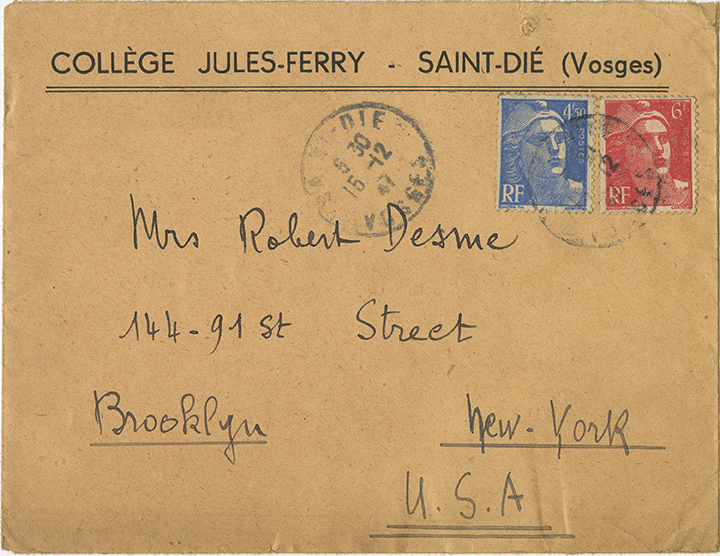 COLLÈGE JULES-FERRY - SAINT-DIÉ (Vosges)
4f50
POSTES
RF
6f
POSTES
RF
SAINT-DIÉ
30
15-12
47
VOSGES
Mrs Robert Desme
144-91 st Street
Brooklyn New-York
U.S.A